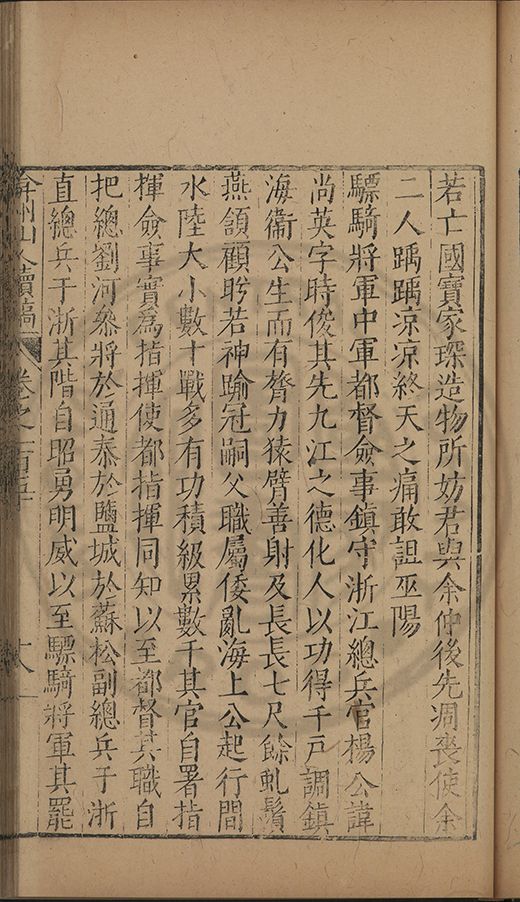 若亡國寶家琛造物所妨君與余仲後先凋喪使余
二人踽踽凉凉終天之痛敢詛巫陽
驃騎將軍中軍都督僉事鎮守浙江總兵官楊公諱
尚英字時俊其先九江之德化人以功得千戶調鎮
海衞公生而有膂力猿臂善射及長長七尺餘虬鬚
燕頷顧盻若神踰冠嗣父職屬倭亂海上公起行間
水陸大小數十戰多有功積級累數千其官自署指
揮僉事實為指揮使都指揮同知以至都督其職自
把總劉河叅將於通泰於鹽城於蘇松副總兵于浙
直總兵于浙其階自昭勇明威以至驃騎將軍其罷
弇州山人續稿 卷之一百